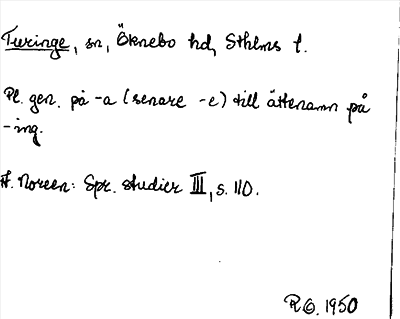 Turinge, sn, Öknebo hd, Sthlms l.
Pl. gen. på -a (senare -e) till ättenamn på
-ing.
A. Noreen: Spr. studier III, s. 110.
R.O. 1950